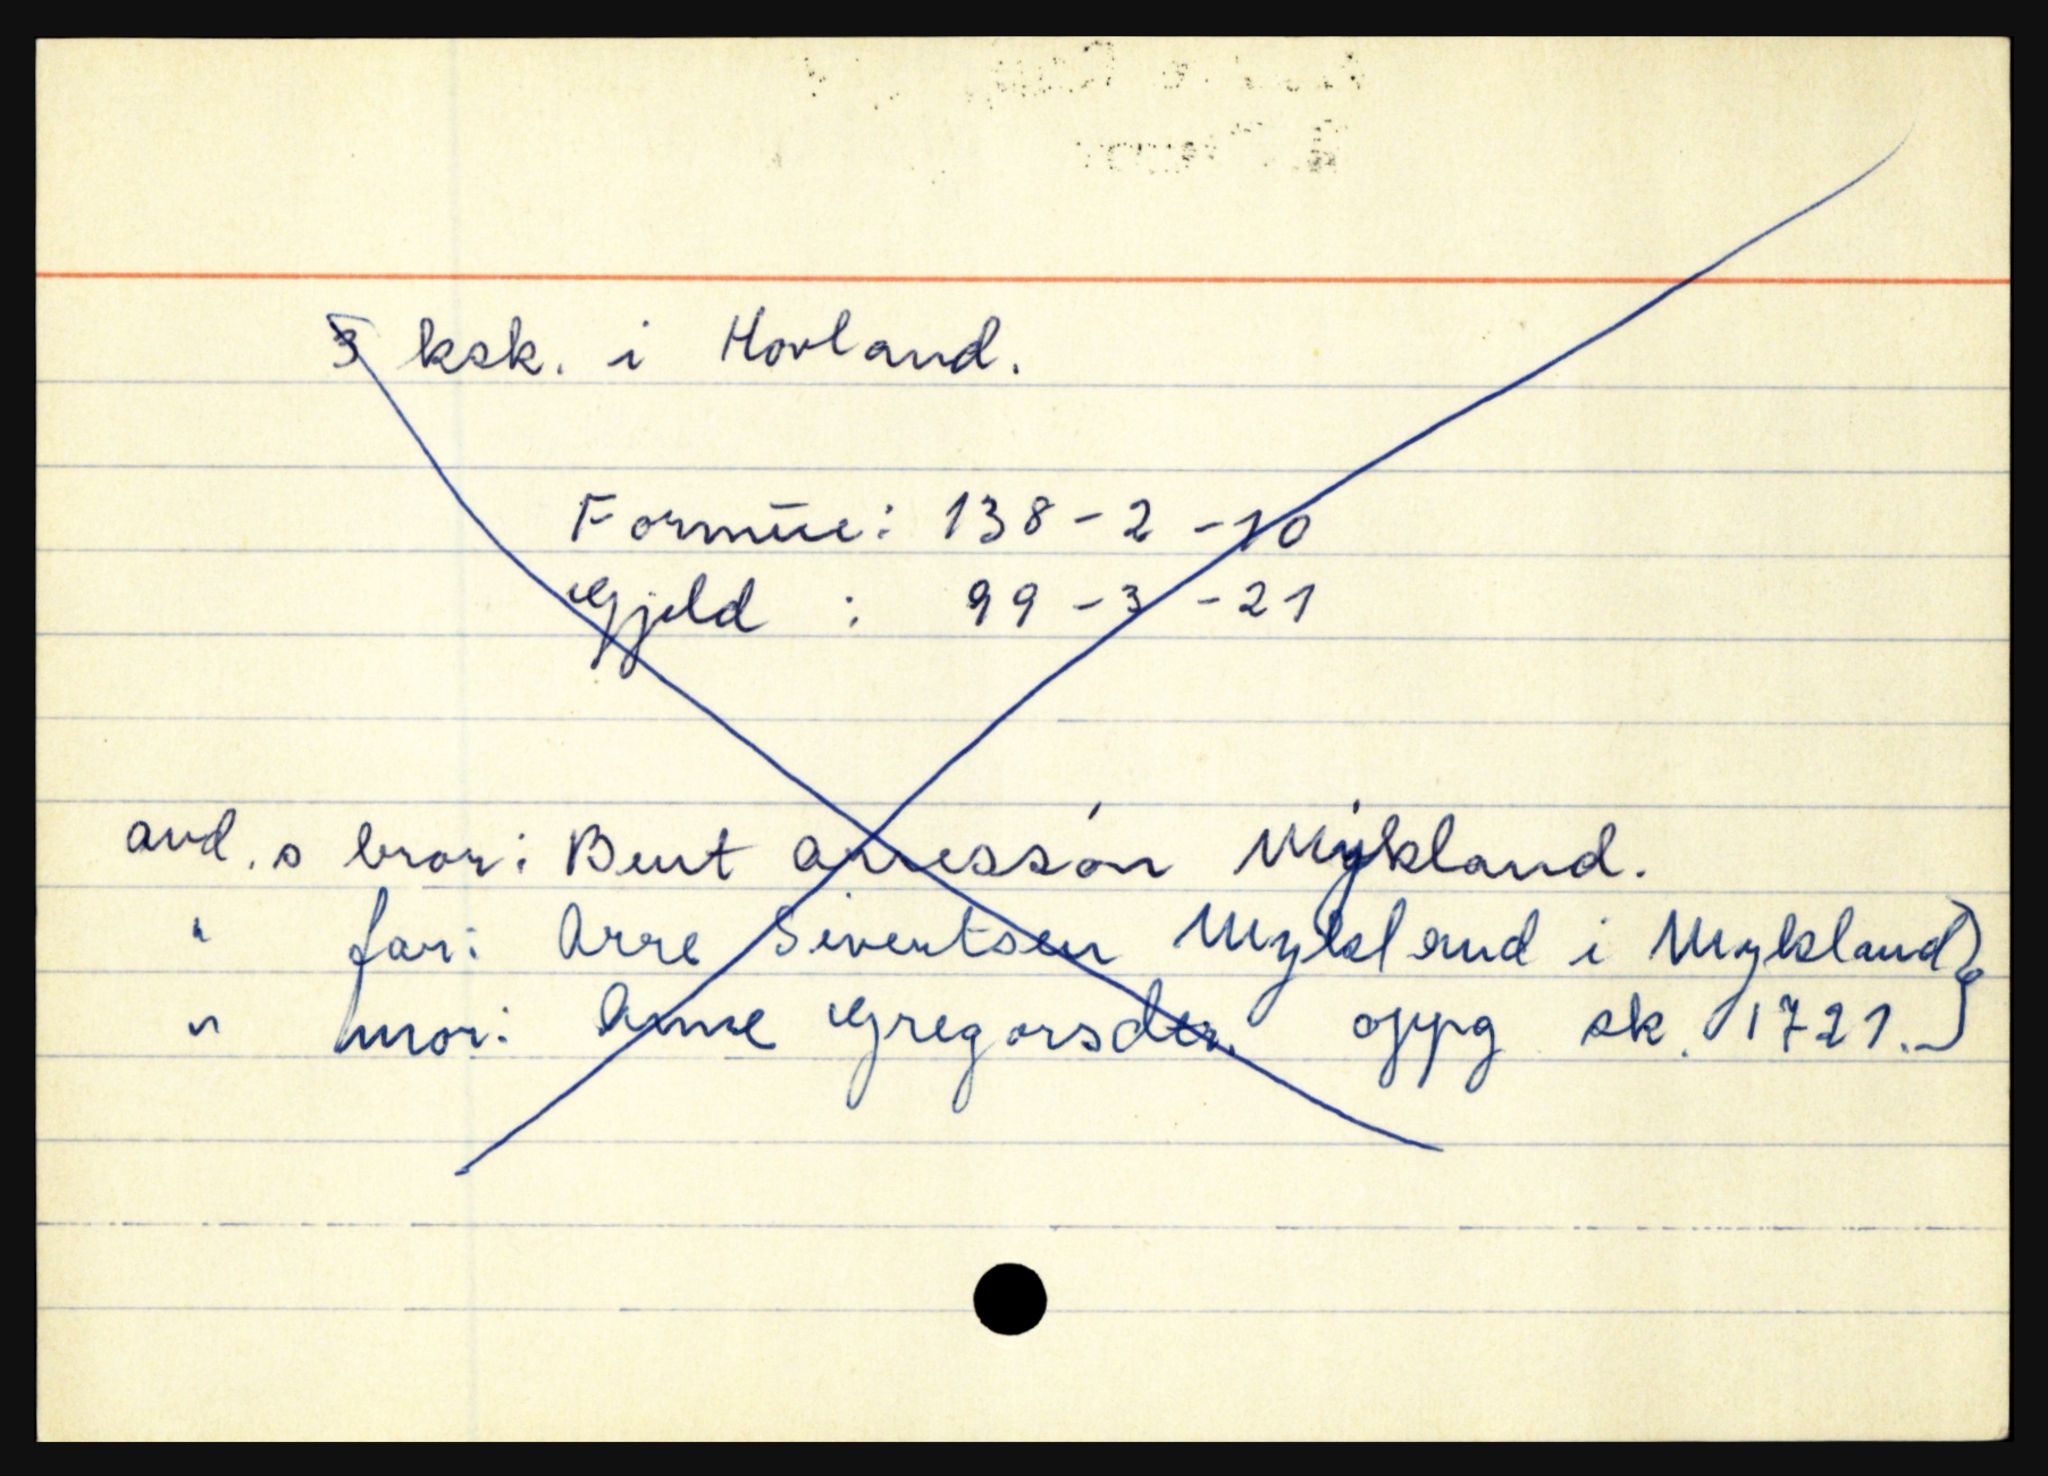 3 ksk. i Hovland.
Formue: 138 - 2 - 10
Gjeld : 99 - 3 - 21
avd.s bror: Bent Arressøn Mykland.
" far: Arre Sivertsen Mykland i Mykland}
" mor: Anne Gregorsdtr. oppg sk. 1721.}